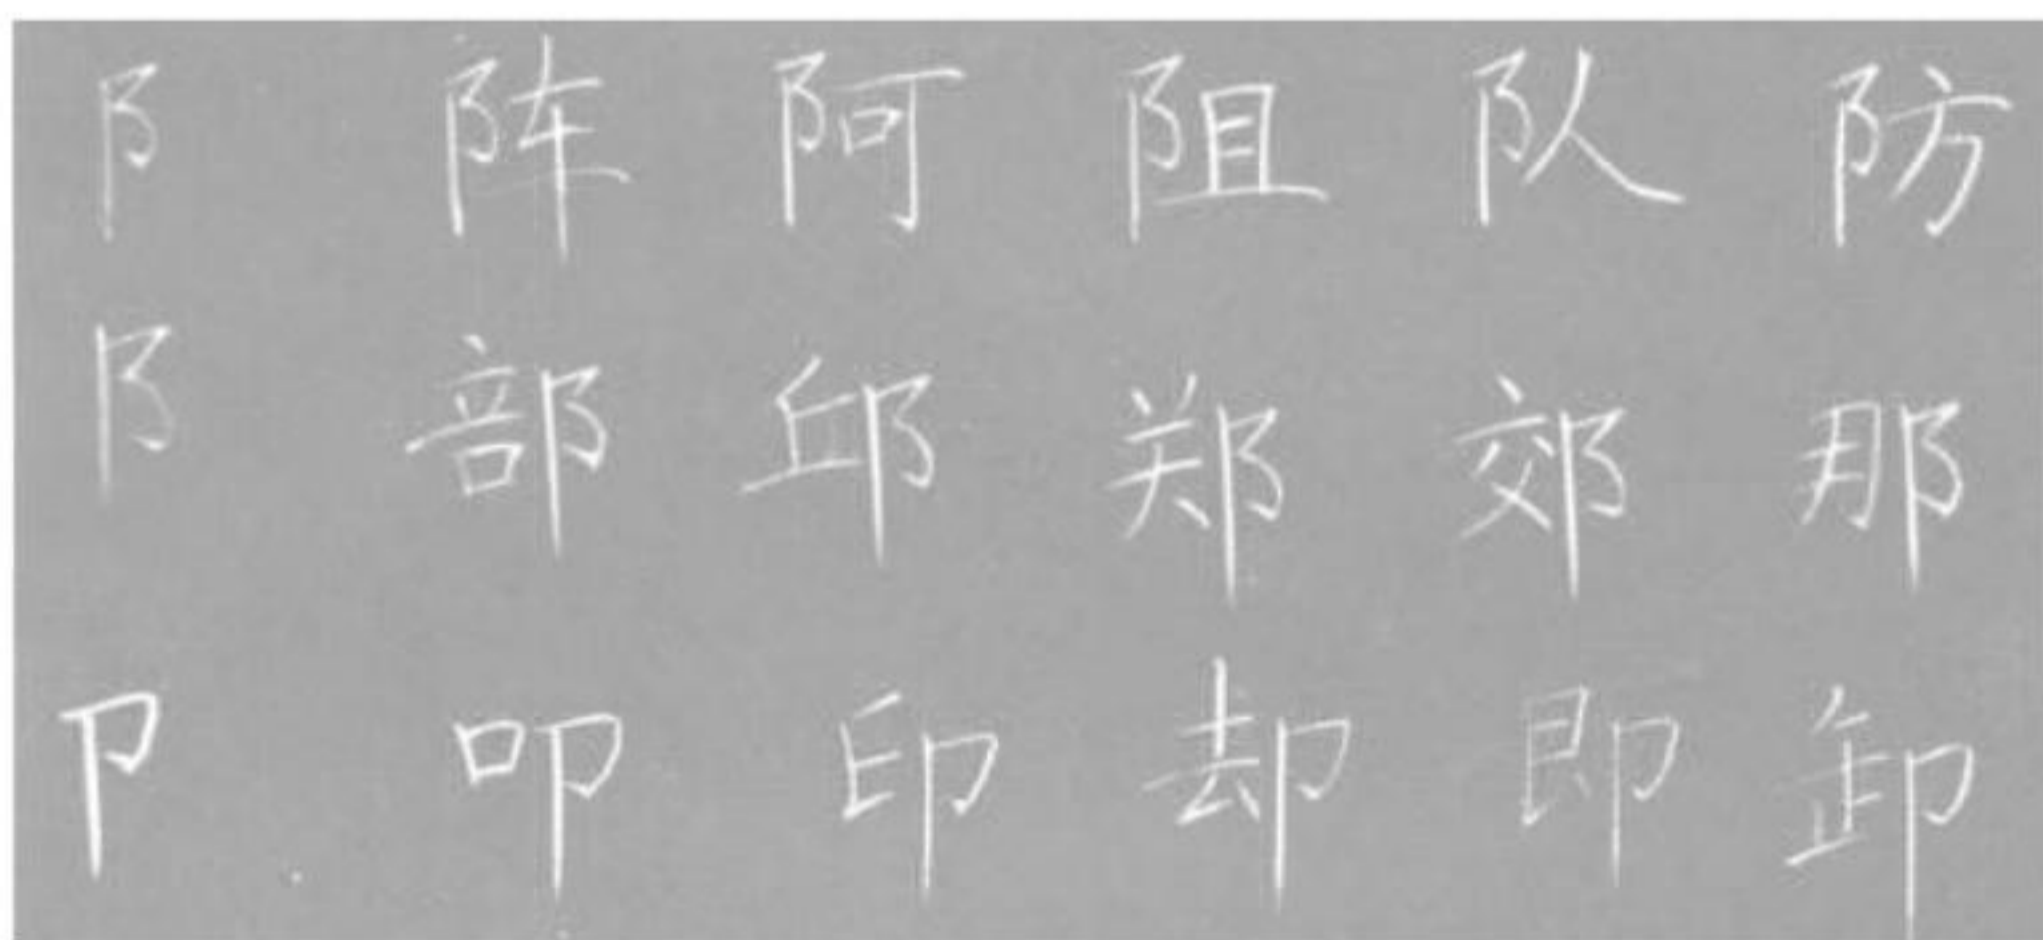 阝 阵 阿 阻 队 防
阝 部 邱 郑 郊 那
卩 叩 印 却 即 卸